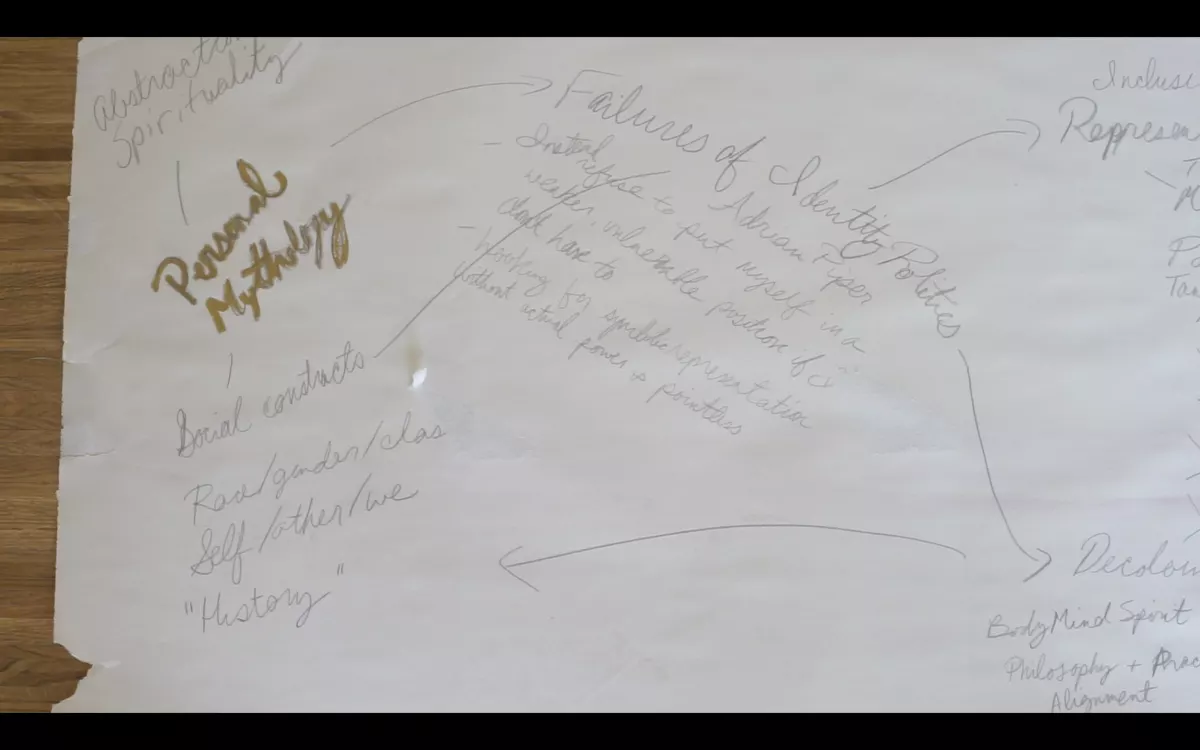 Abstraction
Spirituality
Personal
Mythology
Social constructs
Race/gender/clas
Self/other/we
"History"
Failures of Identity Politics
Adrian Piper
- Instead refuse to put myself in a
weaker, vulnerable position if I
don't have to
- Looking for symbolic representation
without actual power is pointless
Inclusi
Represen
Decolon
Body Mind Spirit
Philosophy + Prac
Alignment